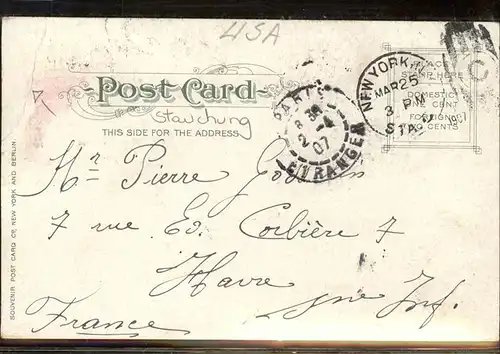 USA
Post Card
Stauchung
THIS SIDE FOR THE ADDRESS
PARIS
2-4
07
ETRANGER
NEW YORK, N.Y.
MAR 25
3 PM
STA.
PLACE
STAMP HERE
DOMESTIC
ONE CENT
FOREIGN
TWO CENTS
C
Mr Pierre
7 rue Ed. Corbière 7
Havre
Sne Inf.
France
SOUVENIR POST CARD CO, NEW YORK AND BERLIN.